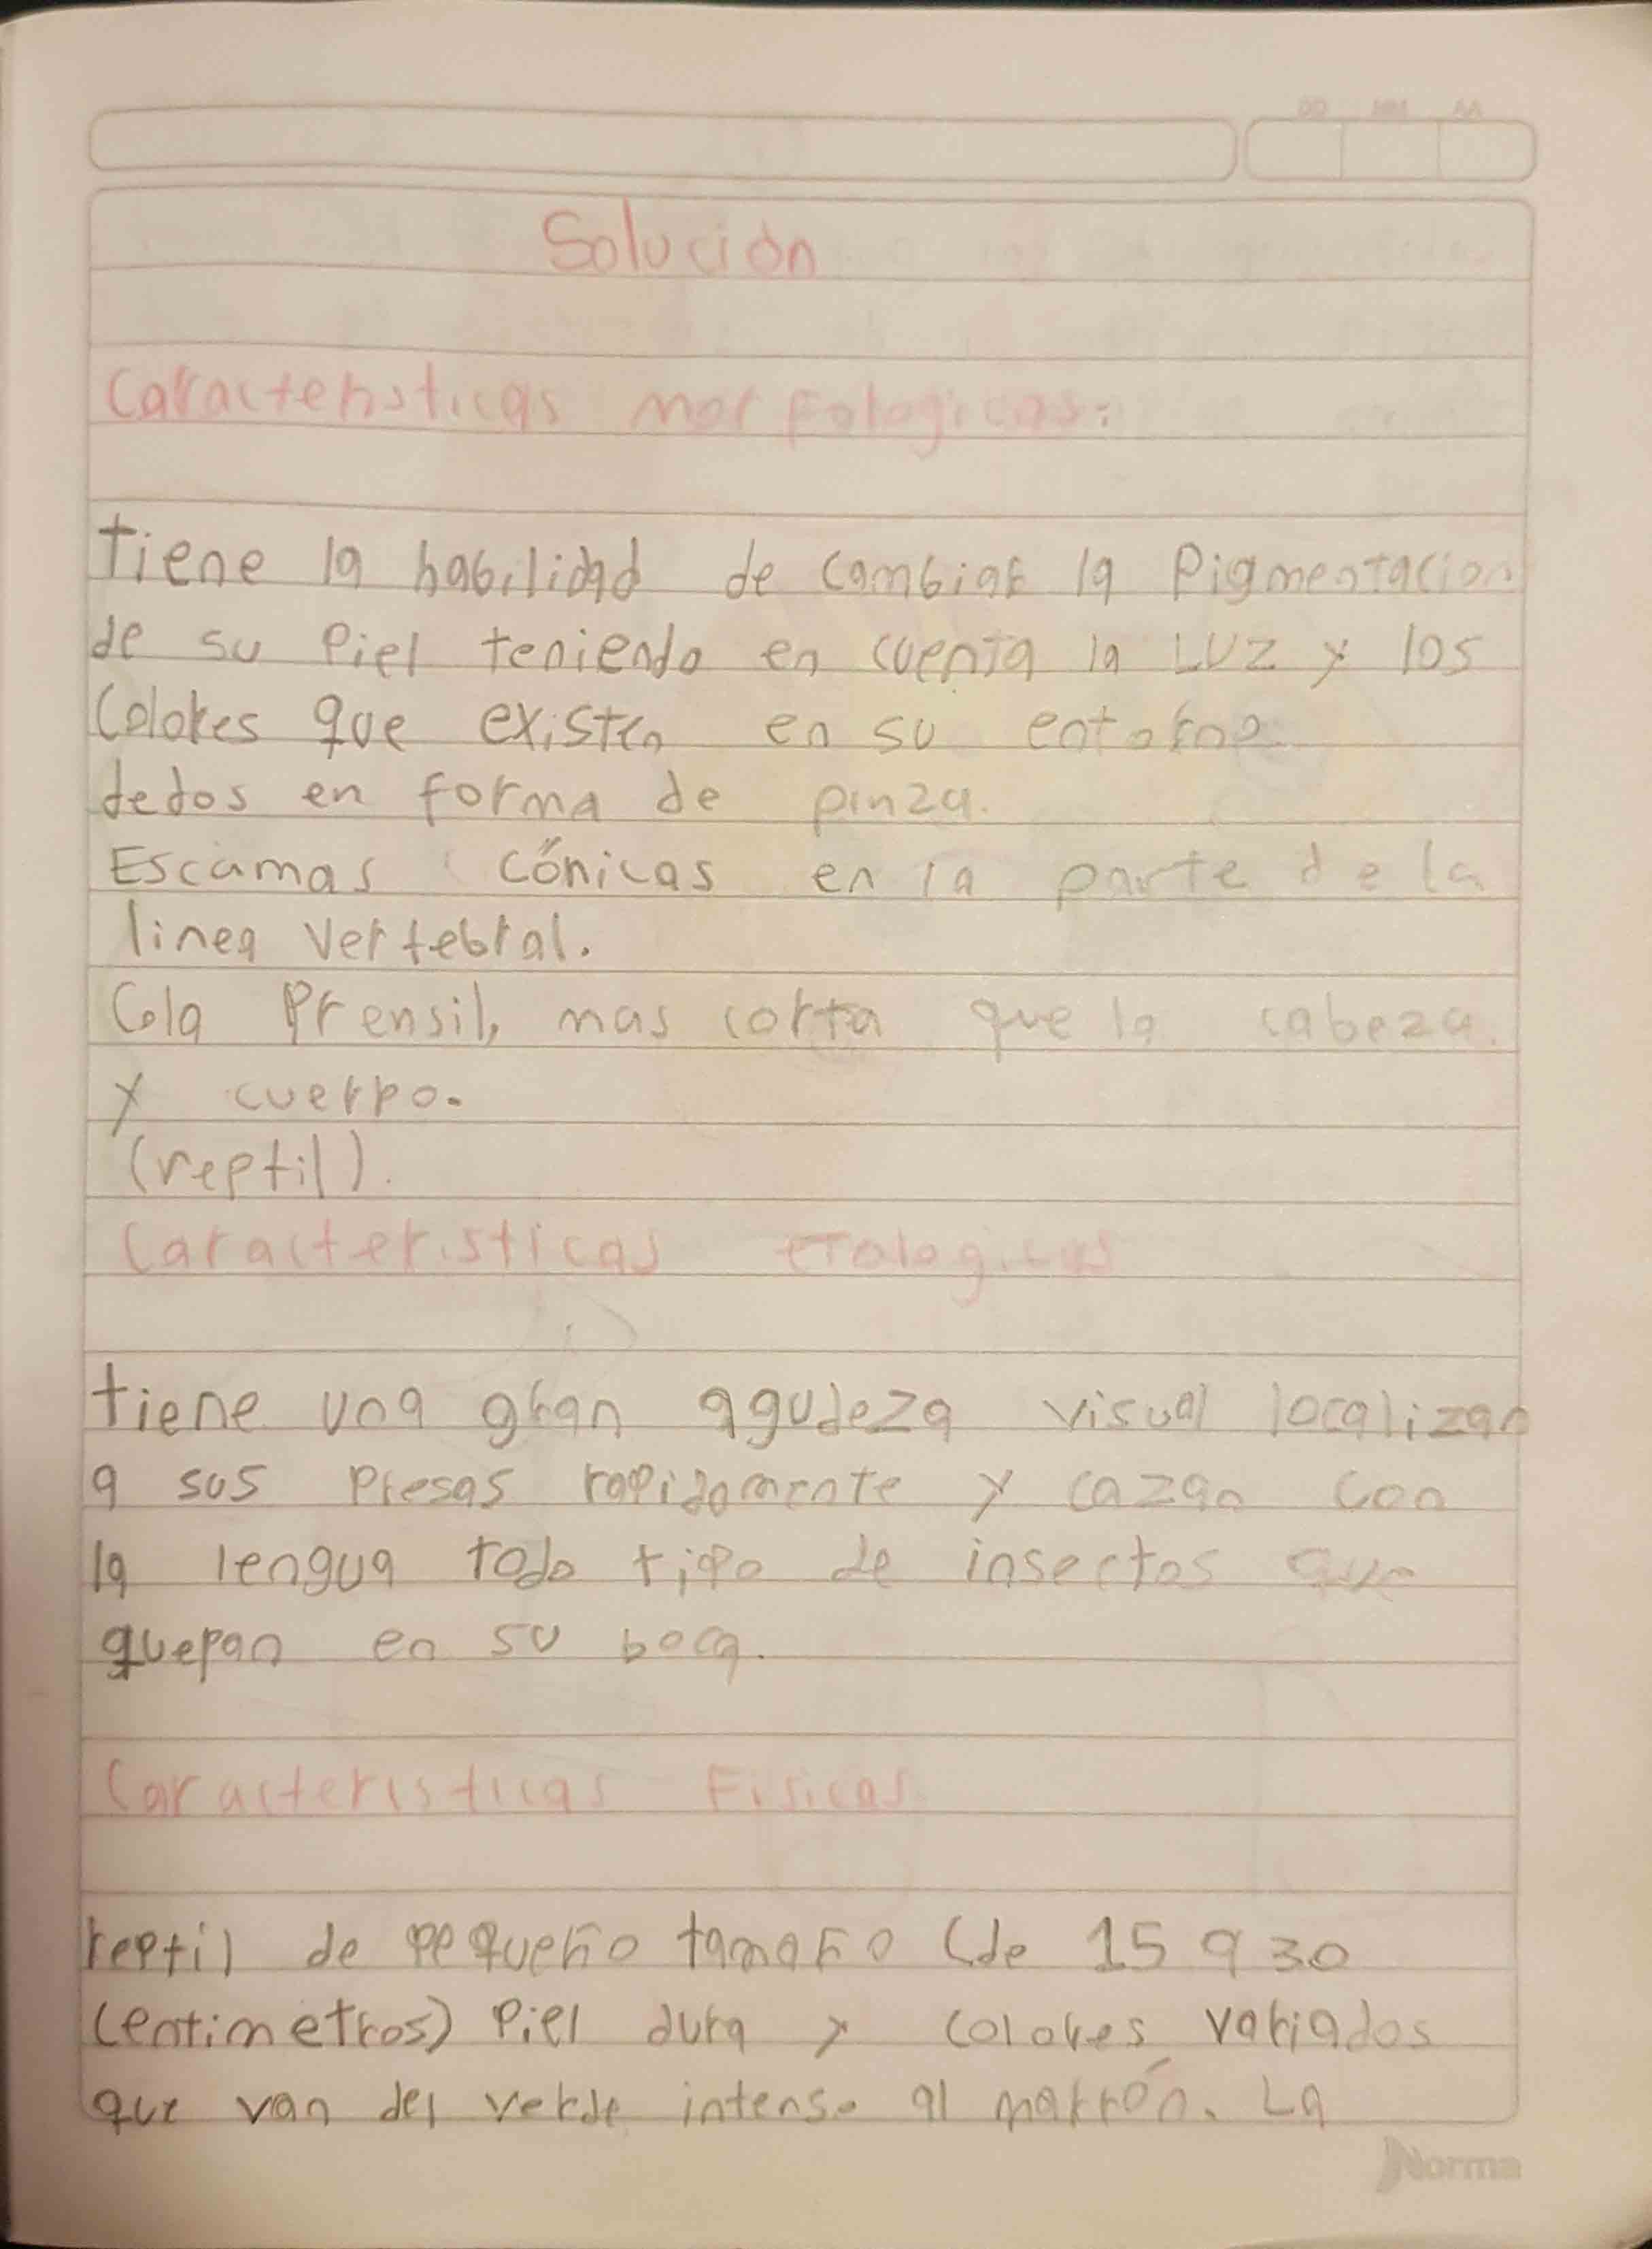 DD MM AA
Solución
Caracteristicas morfologicas:
tiene la habilidad de cambiar la Pigmentacion
de su Piel teniendo en cuenta la LUZ y los
Colores que existen en su entorno
dedos en forma de pinza.
Escamas cónicas en la parte de la
linea vertebral.
Cola Prensil, mas corta que la cabeza
y cuerpo.
(reptil).
Caracteristicas etologicas
tiene una gran agudeza visual localizan
a sus Presas rapidamente y cazan con
la lengua todo tipo de insectos que
quepan en su boca.
Caracteristicas Fisicas
reptil de pequeño tamaño (de 15 a 30
centimetros) Piel dura y colores variados
que van del verde intenso al marrón. La
Norma